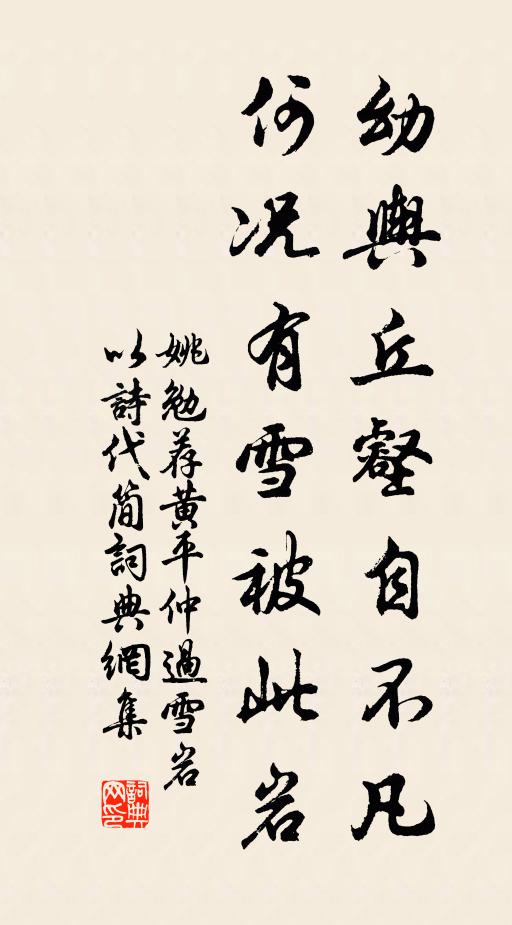 幼輿丘壑自不凡
何况有雪被此岩
姚勉荐黄平仲過雪岩
以詩代简詞典網集
詞典网印